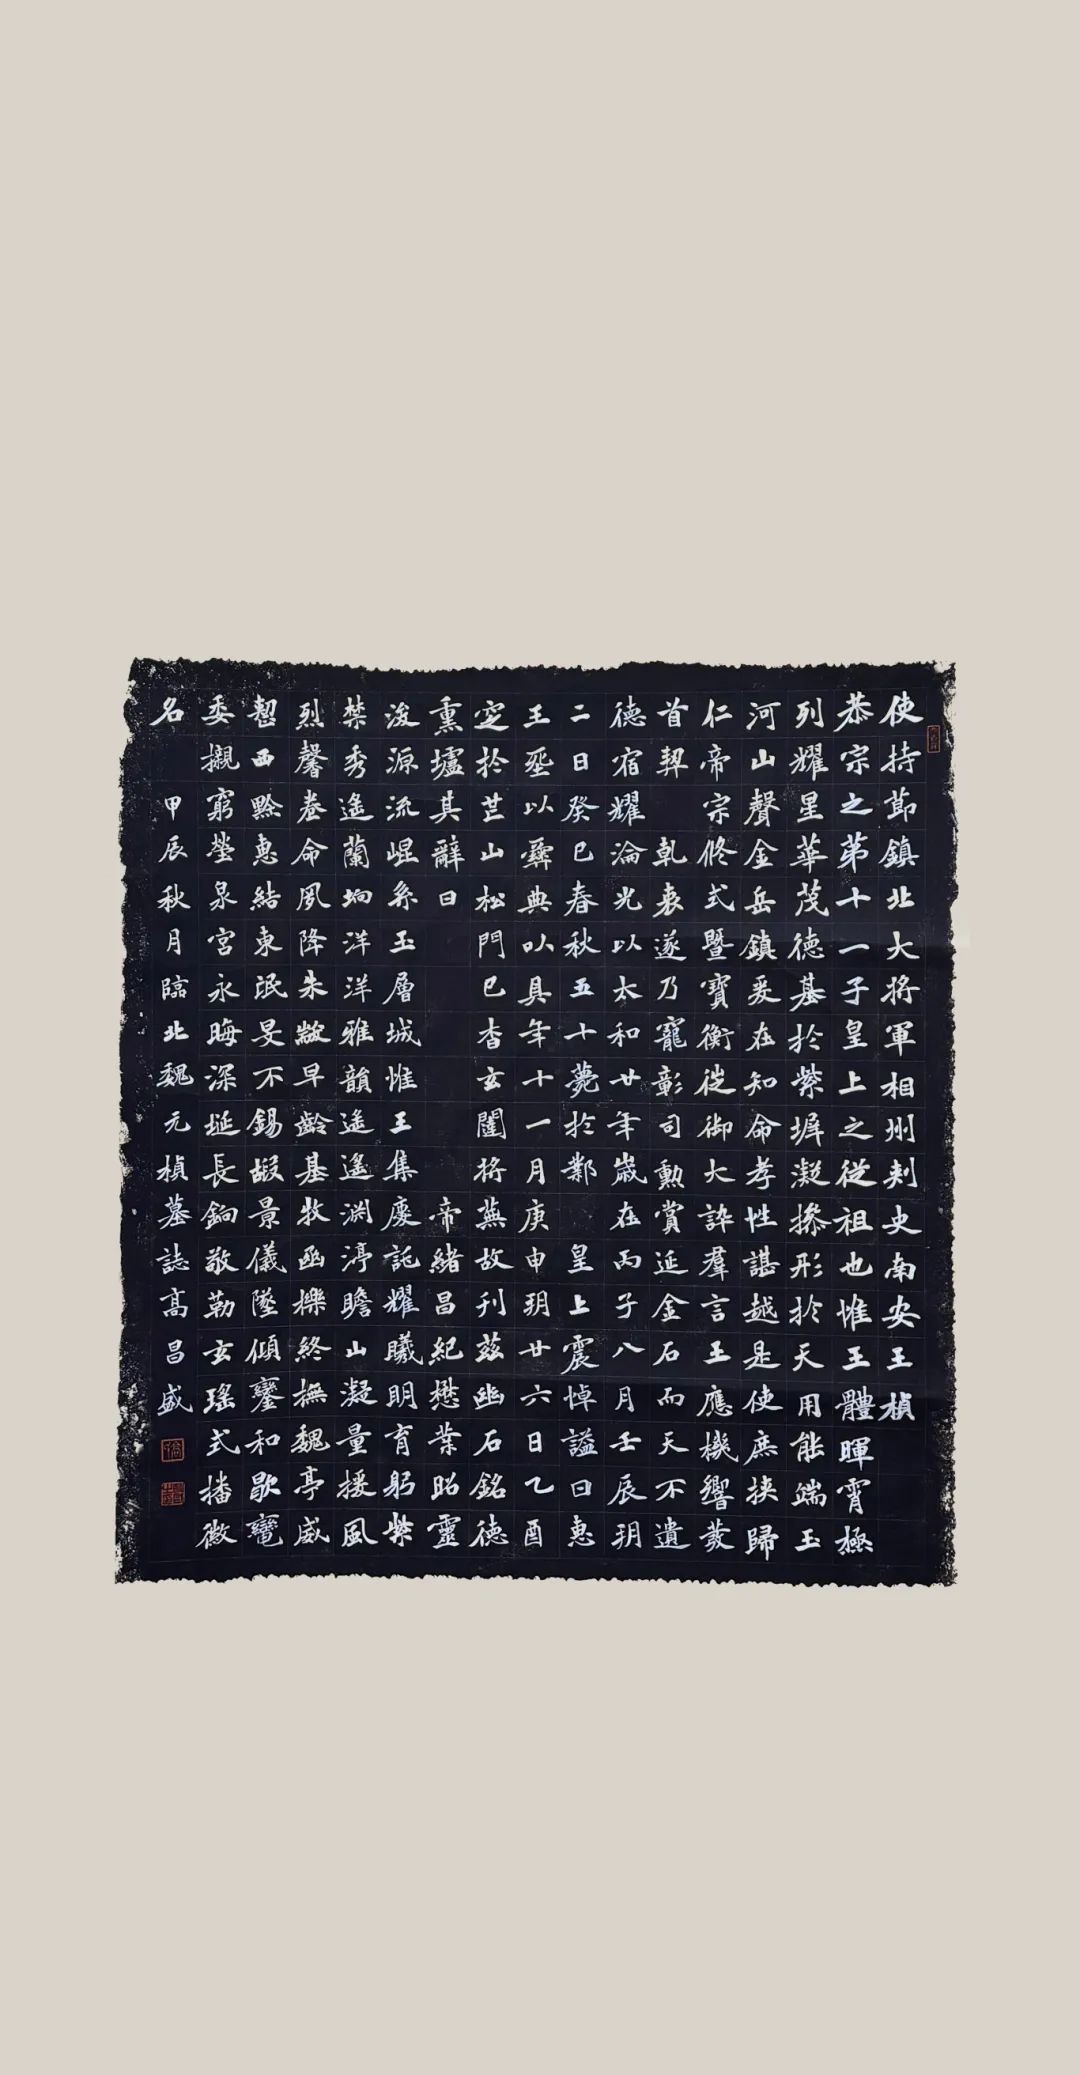 使持節鎮北大將軍相州刺史南安王楨
恭宗之第十一子皇上之從祖也惟王體暉霄極
列耀星華茂德基於紫墀凝摻形於天用能端玉
河山聲金岳鎮爰在知命孝性諶越是使庶族歸
仁帝宗攸式暨寶衡徙御大訞羣言王應機響發
首契 乹衷遂乃寵彰司勳賞延金石而天不遺
德宿耀淪光以太和廿年歲在丙子八月壬辰玥
二日癸巳春秋五十薨於鄴 皇上震悼謚曰惠
王坙以彝典以具年十一月庚申玥廿六日乙酉
窆於芒山松門已杳玄闥將蕪故刊茲幽石銘德
熏壚其辭曰 帝緒昌紀懋業昭靈
浚源流崐系玉層城惟王集慶託耀曦明育躬紫
禁秀遙蘭坰洋洋雅韻遙遙渊渟瞻山凝量援風
烈馨卷命夙降朱黻早齡基牧函櫟終撫魏亭威
翿西黔惠結東泯旻不錫嘏景儀墬傾鑾和歇鸞
委櫬窮塋泉宮永晦深埏長鋿敬勒玄瑤式播徽
名 甲辰秋月臨北魏元楨墓誌高昌盛